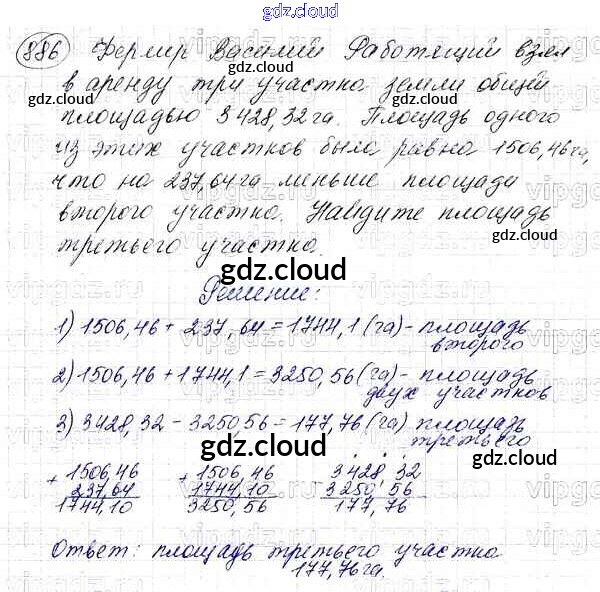 gdz.cloud
886 Фермер Василий Работящий взял
в аренду три участка земли общей
gdz.cloud gdz.cloud
площадью 3428,32 га. Площадь одного
из этих участков была равна 1506,46 га,
что на 237,64 га меньше площади
gdz.cloud
второго участка. Найдите площадь
gdz.cloud
третьего участка.
gdz.cloud
Решение:
1) 1506,46 + 237,64 = 1744,1 (га) - площадь
второго
2) 1506,46 + 1744,1 = 3250,56 (га) - площадь
двух участков
3) 3428,32 - 325056 = 177,76 (га) площадь
третьего
gdz.cloud gdz.cloud
+ 1506,46 + 1506,46 - 3428,32
237,64 1744,10 3250,56
1744,10 3250,56 177,76
gdz.cloud
Ответ: площадь третьего участка
177,76 га.
gdz.cloud